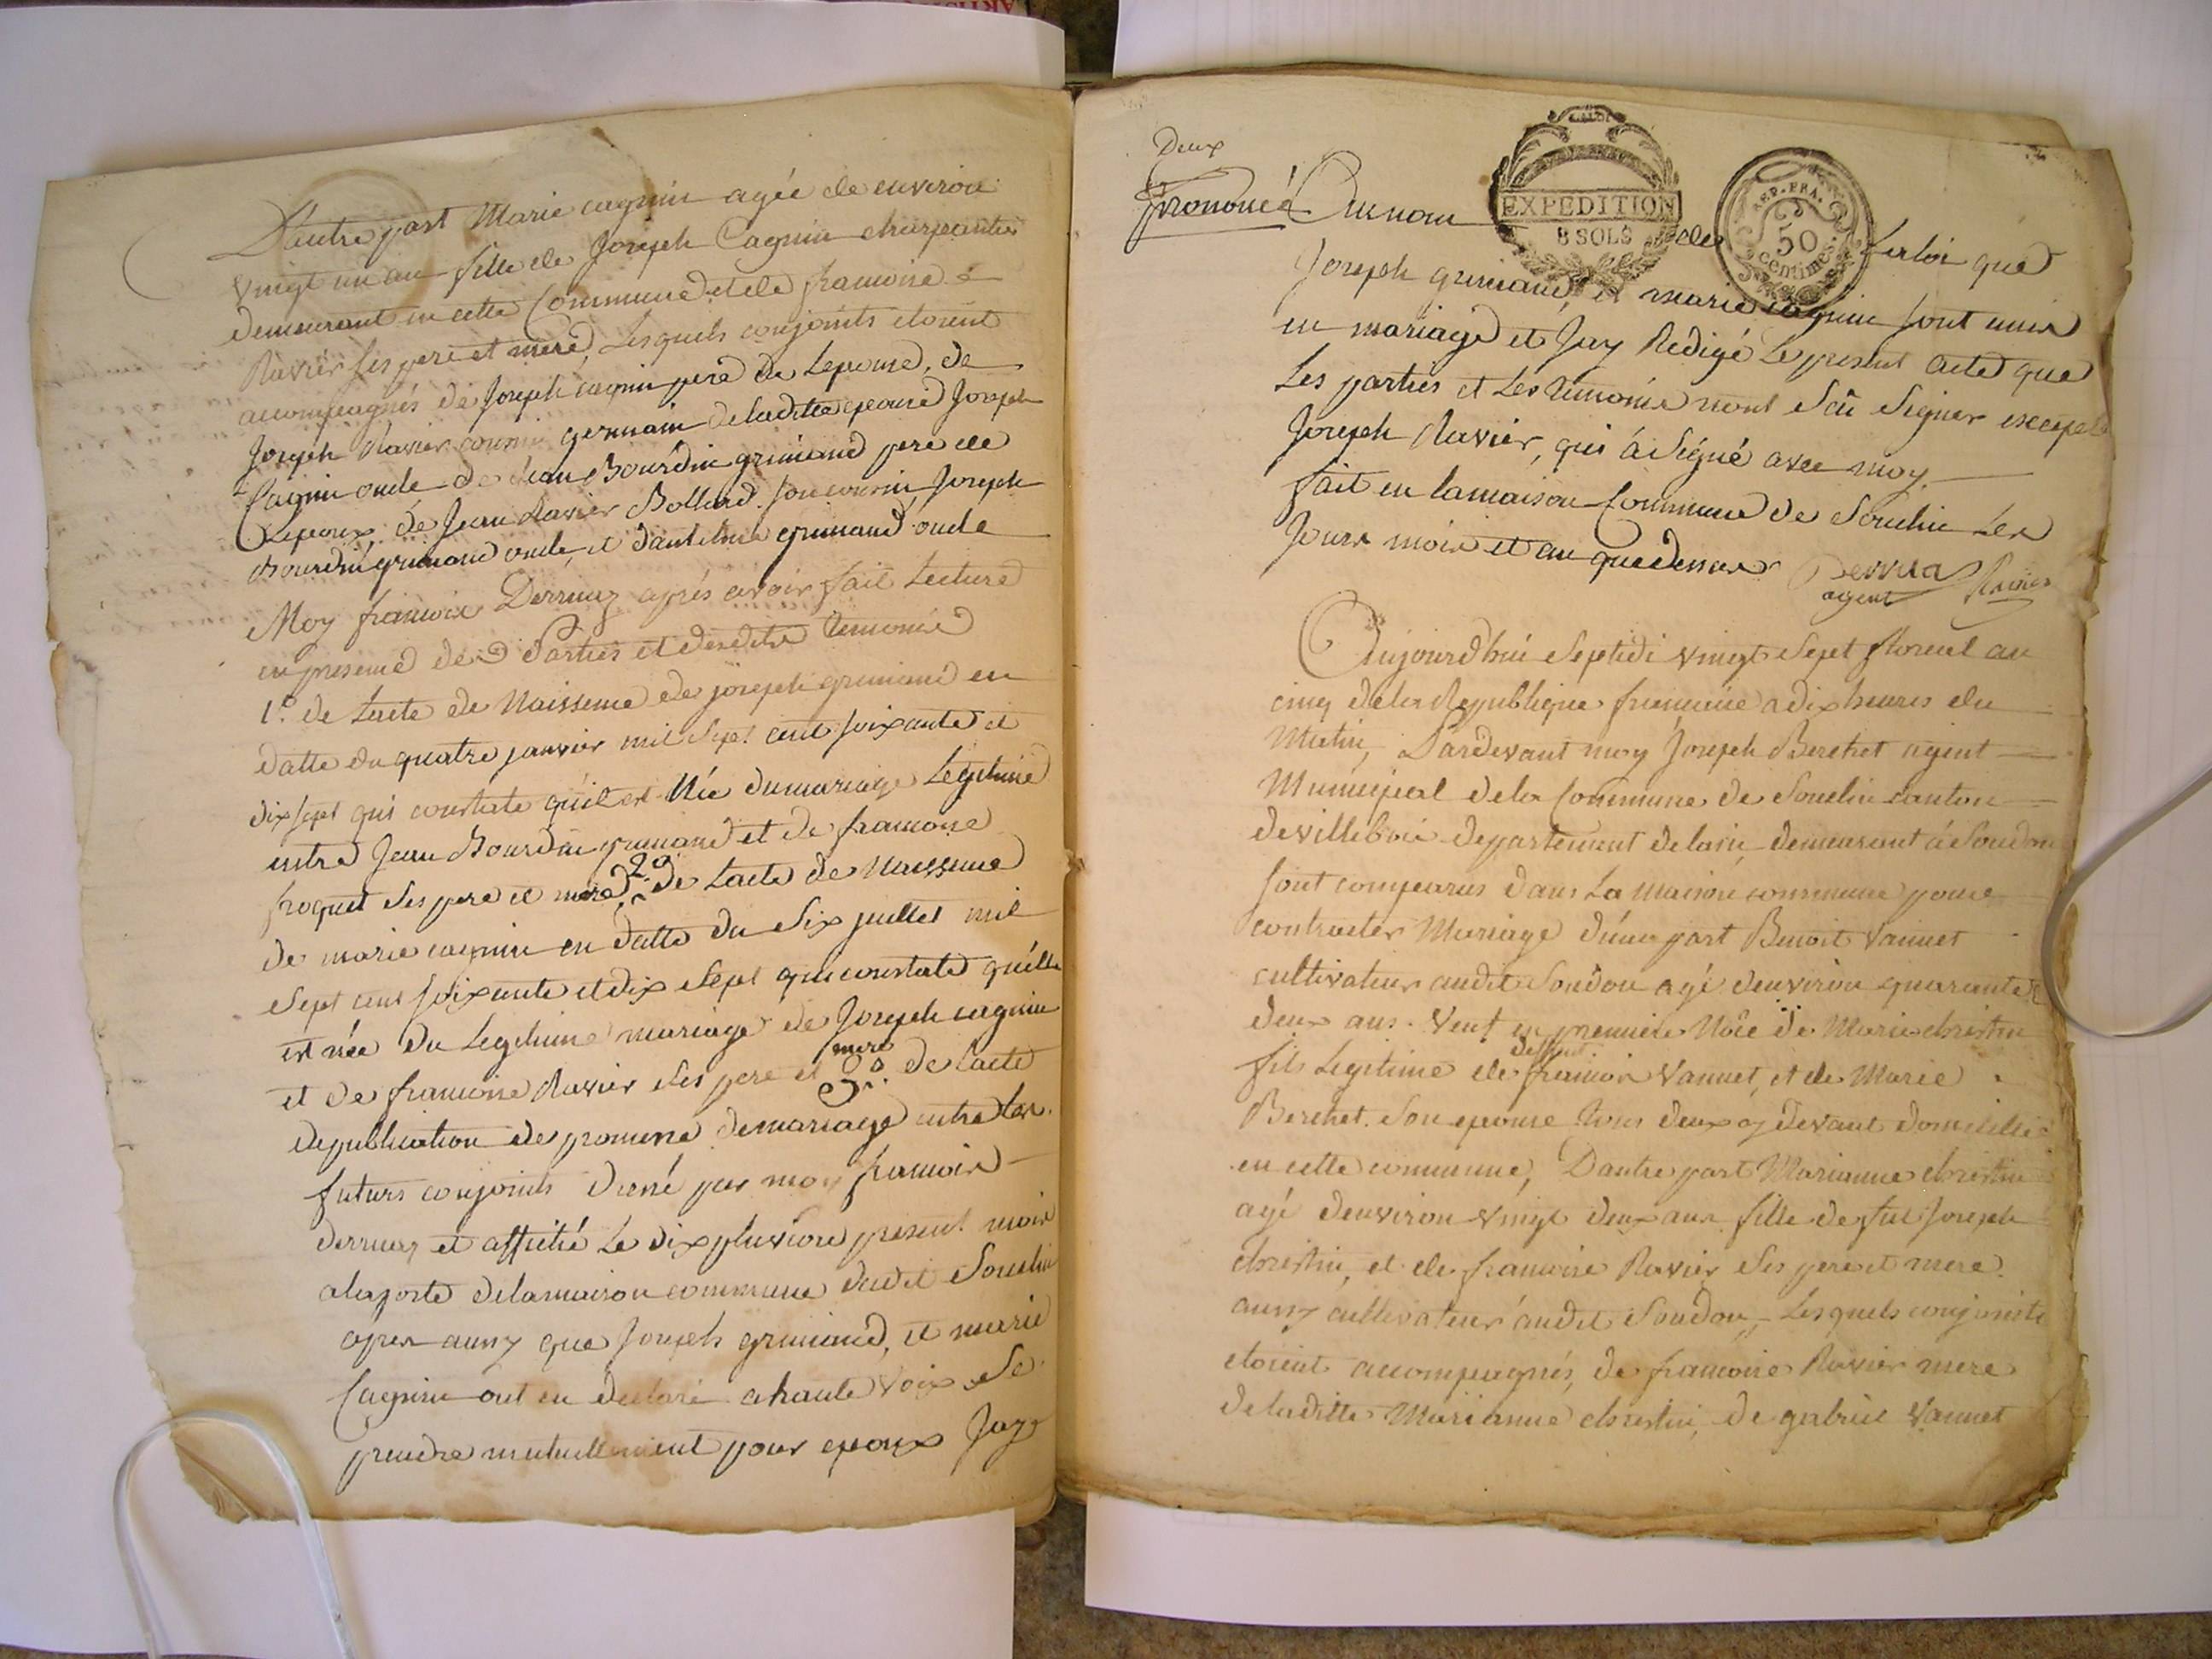 D'autre part Marie cagnin agée de environ
vingt un an fille de Joseph Cagnin charpantier
demeurant en cette Commune et de francoise
Ravier ses pere et mere, Lesquels conjoints etoient
accompagnés de Joseph cagnin pere de Lepouse, de
Joseph Ravier cousin germain de laditte epouse Joseph
Cagnin oncle de Jean Bourdin grimand pere de
Lepoux, de Jean Ravier Bolliard son cousin, Joseph
Bourdin grimand oncle, et d'antelme grimand oncle
Moy francois Derruaz aprés avoir fait Lecture
en presence des Parties et desdits temoins
1.° de Lacte de Naissence de joseph grimand en
datte du quatre janvier mil sept cent soixante et
dix sept qui constate qu'il est Née du mariage Legitime
entre Jean Bourdin grimand et de francoise
froquet ses pere et mere, 2.° de Lacte de Naissence
de marie cagnin en datte du six juillet mil
sept cens soixante et dix sept qui constate qu'elle
est née du Legitime mariage de Joseph cagnin
et de francoise Ravier ses pere et mere 3.° de Lacte
de publication de promesse de mariage entre les
futurs conjoints dressé par moy francois
derruaz et affiché Le dix pluviose present mois
a la porte de la maison commune dudit Souclin
apres aussy que Joseph grimand, et marie
Cagnin ont eu declaré a haute voix se
prendre mutuellement pour epoux Jay
Deux
prononcé Au nom de La loi que
EXPEDITION
8 SOLS
REP. FRA.
50
centimes
Joseph grimand, et marie cagnin sont unis
en mariage et Jay Redigé Le present acte que
Les parties et Les temoins n'ont sçu signer excepté
Joseph Ravier, qui à signé avec moy.
fait en la maison Commune de Souclin Les
Jours mois et an que dessus Derrua Ravier
agent
Aujourd'hui Septidi vingt sept floreal an
cinq de la Republique francaise a dix heures du
Matin, Pardevant moy Joseph Berchet agent
Municipal de la Commune de Souclin canton
de villebois departement de lain, demeurant à Soudon
sont comparus dans La maison commune pour
contracter Mariage d'une part Benoit Vannet
cultivateur audit Soudon agé d'environ quarante
deux ans. veuf en premiere Nôce de Marie christin
fils Legitime de deffunt francois Vannet, et de Marie
Berchet. Son epouse tous deux cy devant domicilies
en cette commune, D'autre part Marianne christin
agé d'environ vingt deux ans fille de fut Joseph
christin, et de francoise Ravier ses pere et mere.
aussy cultivateur audit Soudon, Lesquels conjoints
etoient accompagnés, de francoise Ravier mere
de laditte Marianne christin, de gabriel Vannet